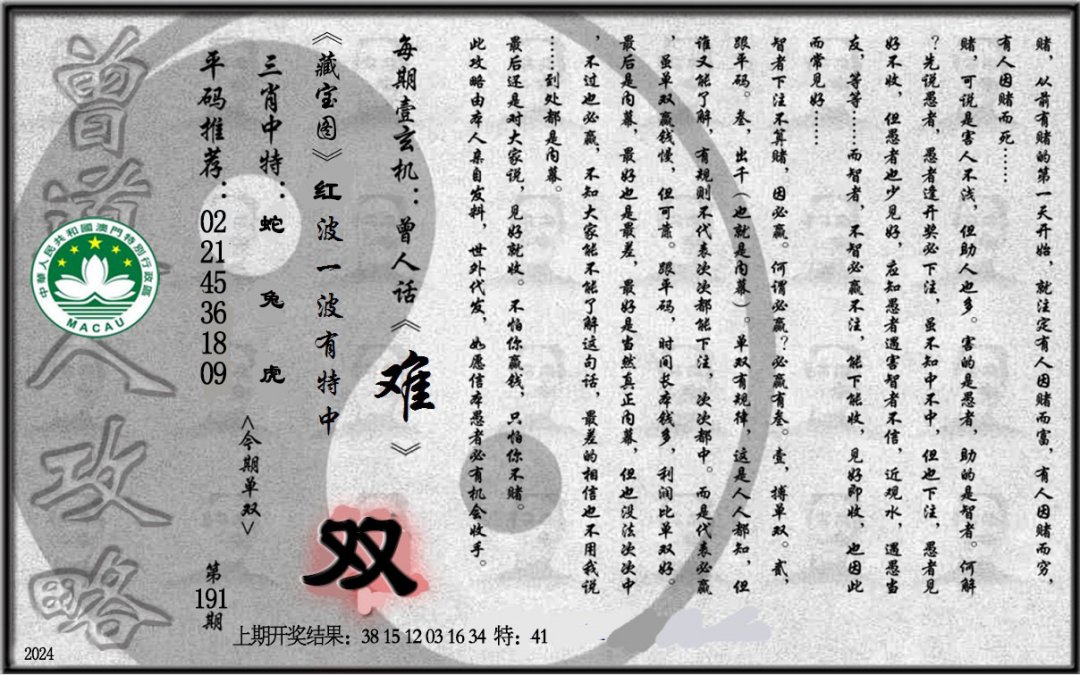 赌，从前有赌的第一天开始，就注定有人因赌而富，有人因赌而穷，
有人因赌而死……
赌，可说是害人不浅，但助人也多。害的是愚者，助的是智者。何解
？先说愚者，愚者逢开奖必下注，虽不知中不中，但也下注，愚者见
好不收，但愚者也少见好，应知愚者遇害智者不信，近观水，遇愚当
友，等等……而智者，不智必赢不注，能下能收，见好即收，也因此
而常见好……
智者下注不算赌，因必赢。何谓必赢？必赢有叁。壹，搏单双。贰，
跟平码。叁，出千（也就是内幕）。单双有规律，这是人人都知，但
谁又能了解，有规则不代表次次都能下注，次次都中。而是代表必赢
，虽单双赢钱慢，但可靠。跟平码，时间长本钱多，利润比单双好。
最后是内幕，最好也是最差，最好是当然真正内幕，但也没法次次中
，不过也必赢，不知大家能不能了解这句话，最差的相信也不用我说
……到处都是内幕。
最后还是对大家说，见好就收。不怕你赢钱，只怕你不赌。
此攻略由本人亲自发料，世外代发，如愿信本愚者必有机会收手。
每期壹玄机：曾人话《难》
《藏宝图》红波一波有特中
双
三肖中特：蛇 兔 虎
<今期单双>
平码推荐：02 21 45 36 18 09
第191期
曾道人攻略
中華人民共和國澳門特別行政區
MACAU
上期开奖结果：38 15 12 03 16 34 特：41
2024